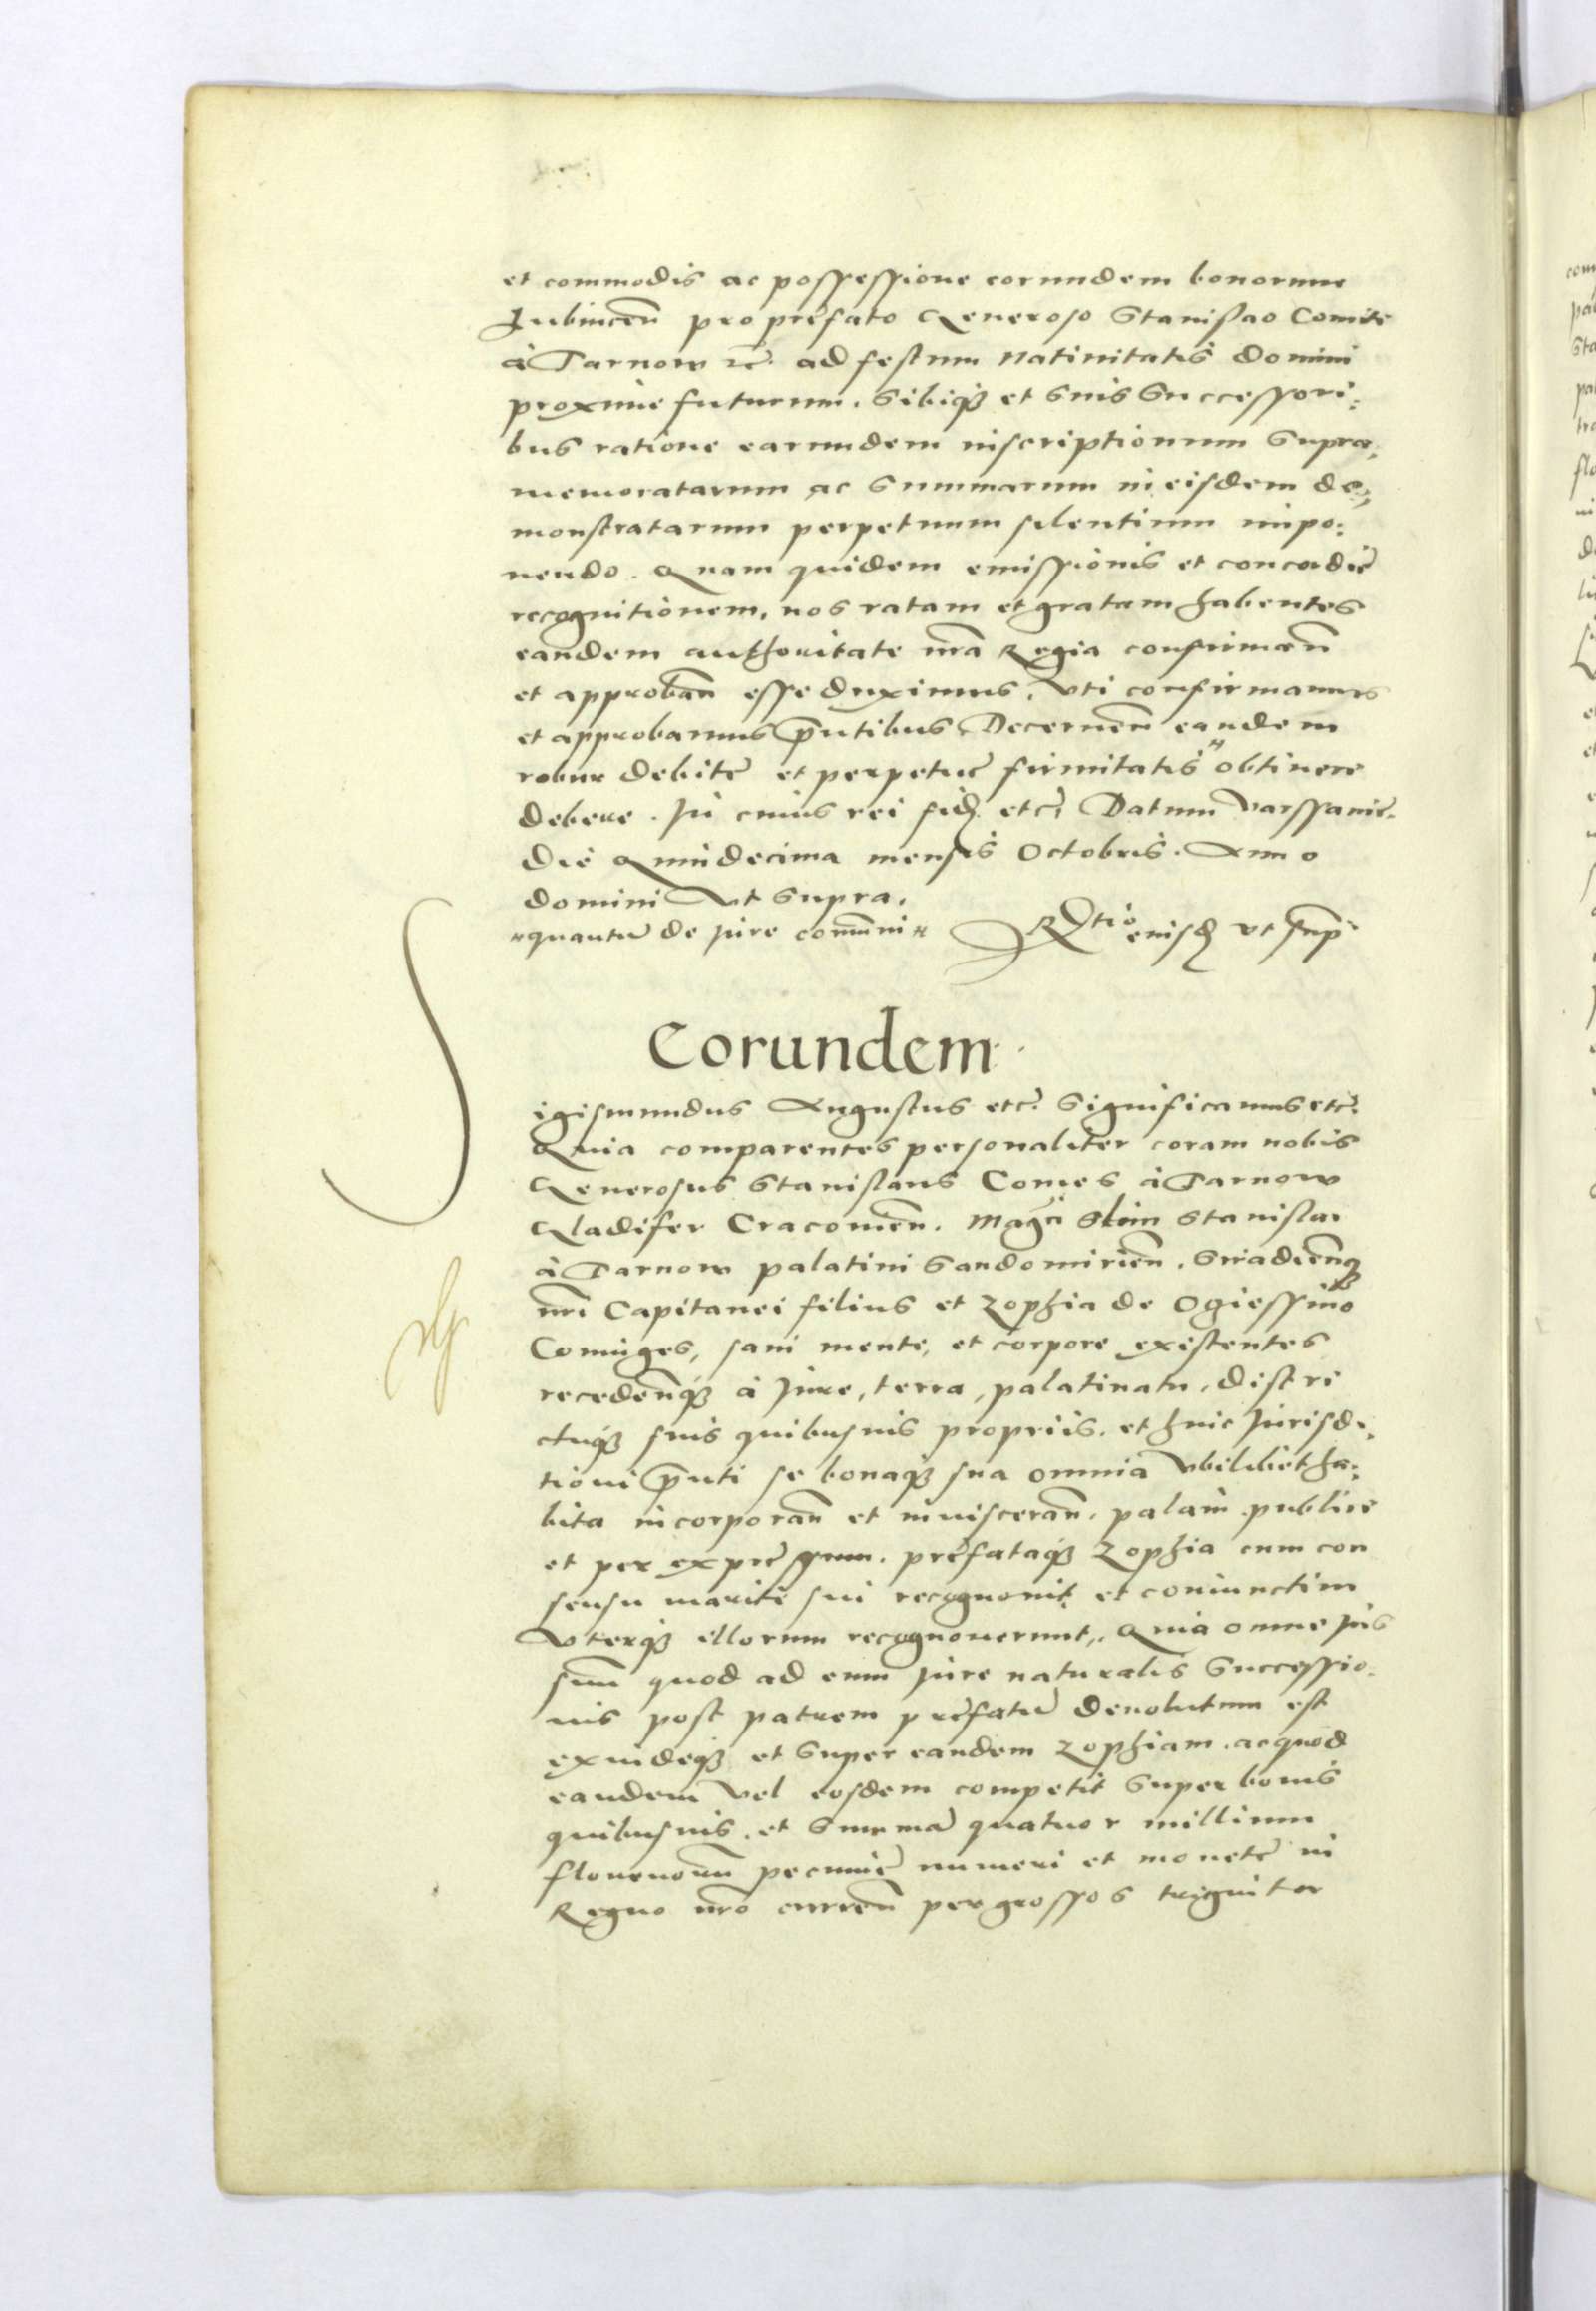 et commodis ac possessione eorundem bonorum
Jubincen̄ pro prefato Generoso Stanislao Comite
à Tarnow etc. ad festum Natiuitatis domini
proxime futurum. Sibiqꝫ et suis Successori:
bus ratione earundem inscriptionum Supra:
memoratarum ac Summarum in eisdem de:
monstratarum perpetuum silentium impo:
nendo. Quam quidem emissionis et concordie
recognitionem, nos ratam et gratam habentes
eandem authoritate nr̄a Regia confirman̄
et approban̄ esse duximus. Vti confirmamus
et approbamus p̄ntibus Decernen̄ eandem
robur debite et perpetue firmitatis " obtinere
debere. In cuius rei fid̄ etc. Datum Varssauie.
die Quindecima mensis Octobris. Anno
domini Vt Supra.
"quantū de Jure com̄uni" R̄tio eiusd̄ vt sup̄
Eorundem
Sigismundus Augustus etc. Significamus etc.
Quia comparentes personaliter coram nobis
Generosus Stanislaus Comes à Tarnow
Gladifer Cracouien̄. Mag̃ci olim Stanislai
à Tarnow palatini Sandomirien̄. Siradien̄qꝫ
nr̄i Capitanei filius et Zophia de Ogiessino
Coniuges, sani mente, et corpore existentes
receden̄qꝫ à Jure, terra, palatinatu, distri
ctuqꝫ suis quibusuis propriis. et huic Jurisdi:
tioni p̄nti se bonaqꝫ sua omnia vbilibet ha:
bita incorporan̄ et inuisceran̄. palam publice
et per expressum. prefataqꝫ Zophia cum con
sensu mariti sui recognouit et coniunctim
Vterqꝫ illorum recognouerunt, Quia omne Jus
suū quod ad eum Jure naturalis Successio:
nis post patrem prefatū deuolutum est
exindeqꝫ et Super eandem Zophiam. ac quod
eandem vel eosdem competit Super bonis
quibusuis. et Summa quatuor millium
florenorū pecunie numeri et monete in
Regno nr̄o curren̄ per grossos triginta